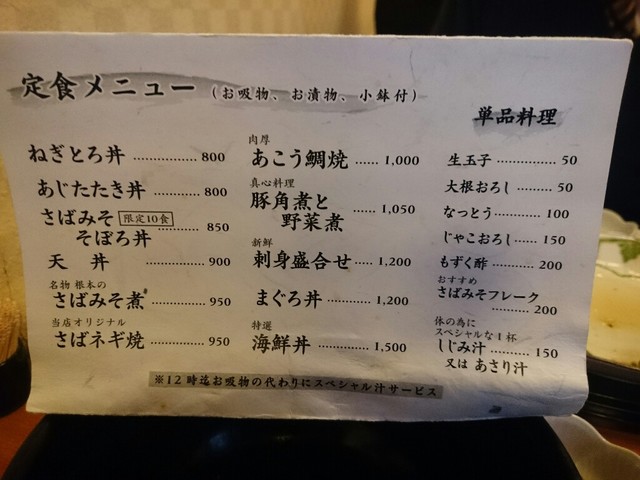 定食メニュー（お吸物、お漬物、小鉢付）
ねぎとろ丼 ............... 800
あじたたき丼 ............ 800
さばみそ 限定10食
そぼろ丼 ......... 850
天　丼 ............... 900
名物 根本の
さばみそ煮 ............ 950
当店オリジナル
さばネギ焼 ............ 950
肉厚
あこう鯛焼 ...... 1,000
真心料理
豚角煮と
野菜煮 ...... 1,050
新鮮
刺身盛合せ ... 1,200
まぐろ丼 ......... 1,200
特選
海鮮丼 ............ 1,500
単品料理
生玉子 ............ 50
大根おろし ......... 50
なっとう ......... 100
じゃこおろし...... 150
もずく酢 ......... 200
おすすめ
さばみそフレーク
......... 200
体の為に
スペシャルな1杯
しじみ汁 ......... 150
又は あさり汁
※12時迄お吸物の代わりにスペシャル汁サービス